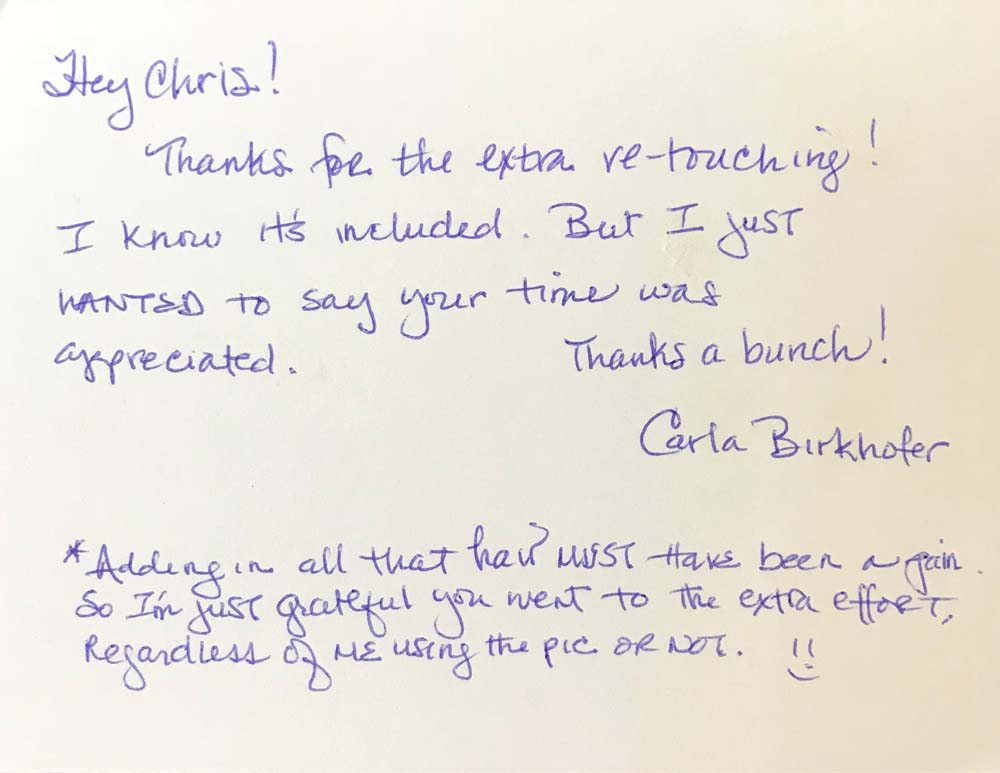 Hey Chris!
Thanks for the extra re-touching!
I know it's included. But I just
WANTED to say your time was
appreciated. Thanks a bunch!
Carla Birkhofer
*Adding in all that hair MUST Have been a pain.
So I'm just grateful you went to the extra effort,
Regardless of ME using the pic OR NOT. !!